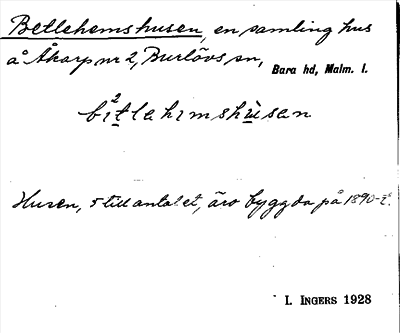 Betlehemshusen, en samling hus
å Åkarp nr 2, Burlövs sn, Bara hd, Malm. l.
bi²tlehemshùsan
Husen, 5 till antalet, äro byggda på 1890-t.
I. INGERS 1928